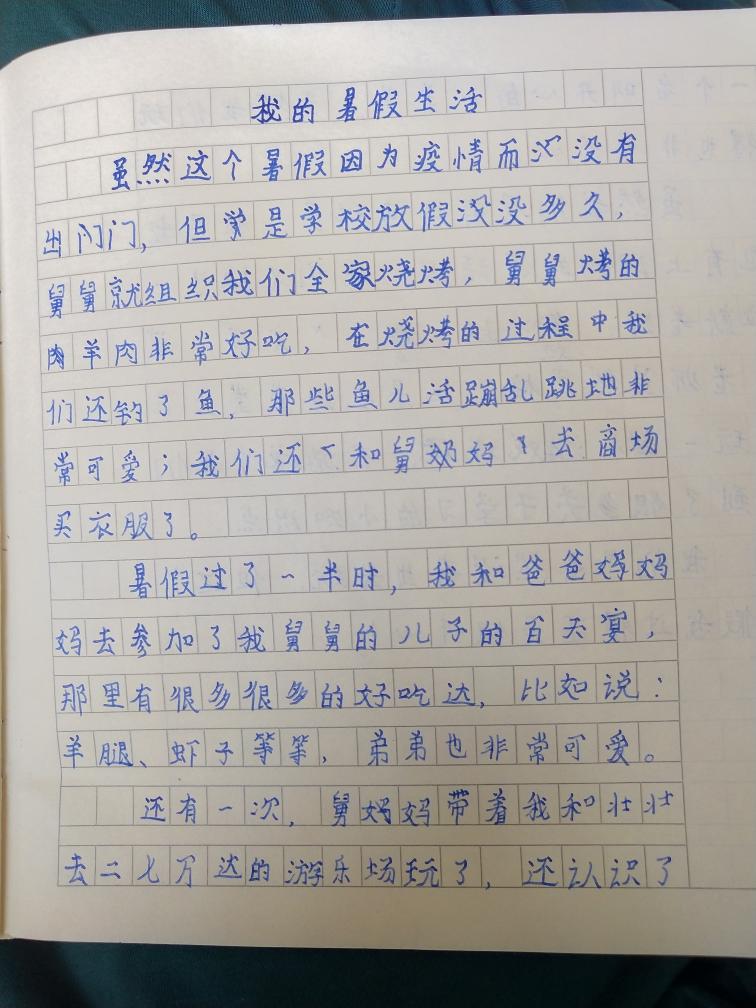 我的暑假生活
虽然这个暑假因为疫情而没有
出门,但是学校放假没多久,
舅舅就组织我们全家烧烤,舅舅烤的
肉羊肉非常好吃,在烧烤的过程中我
们还钓了鱼,那些鱼儿活蹦乱跳地非
常可爱;我们还和舅妈去商场
买衣服了。
暑假过了一半时,我和爸爸妈
妈去参加了我舅舅的儿子的百天宴,
那里有很多很多的好吃达,比如说:
羊腿、虾子等等,弟弟也非常可爱。
还有一次,舅妈带着我和壮壮
去二七万达的游乐场玩了,还认识了